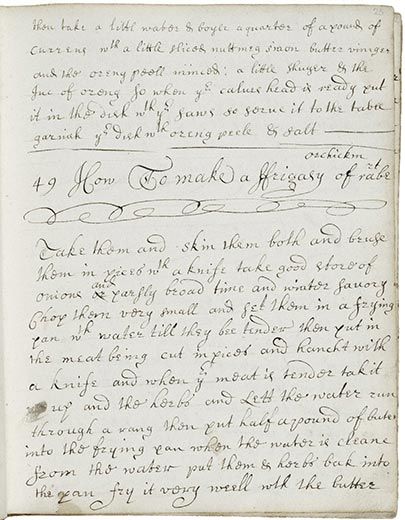 then take a littl water & boyle a quarter of a pound of
Currens wth a little sliced nuttmeg sinon butter viniger
and the oreng peell minced: a little shuger & the
Juc of oreng so when ye calues head is ready put
it in the dish wth ye saws so serue it to the table
garnish ye dish wth oreng peele & salt
or chickin
49 How To make a ffrigasy of rabet
Take them and skin them both and bruse
them in pices wth a knife take good store of
onions and parsly broad time and winter savory
Chop them very small and set them in a frying
pan wth water till they bee tender then put in
the meat being cut in pices and hanckt with
a knife and when ye meat is tender tak it
up and the herbs and Lett the water run
through a rang then put half a pound of buter
into the frying pan when the water is cleane
from the water put them & herbs bak into
the pan fry it very weell wth the butter